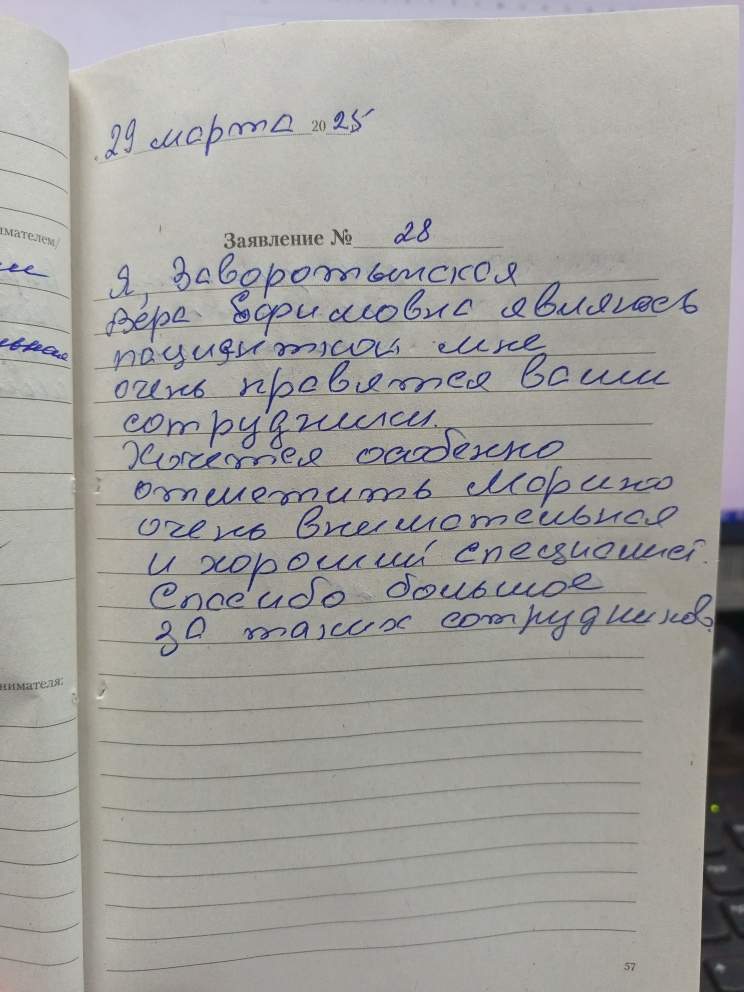 29 марта 2025
имателем/
Заявление № 28
Я, Заворотынская
Вера Ефимовна являюсь
пациенткой мне
очень нравятся ваши
сотрудники.
Хочется особенно
отметить Марину
очень внимательная
и хороший специалист.
Спасибо большое
за таких сотрудников.
нимателя:
57